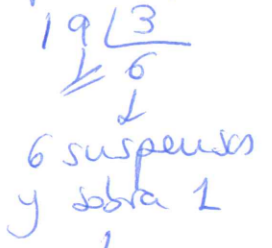 19 | 3
6
6 suspensos
y sobra 1